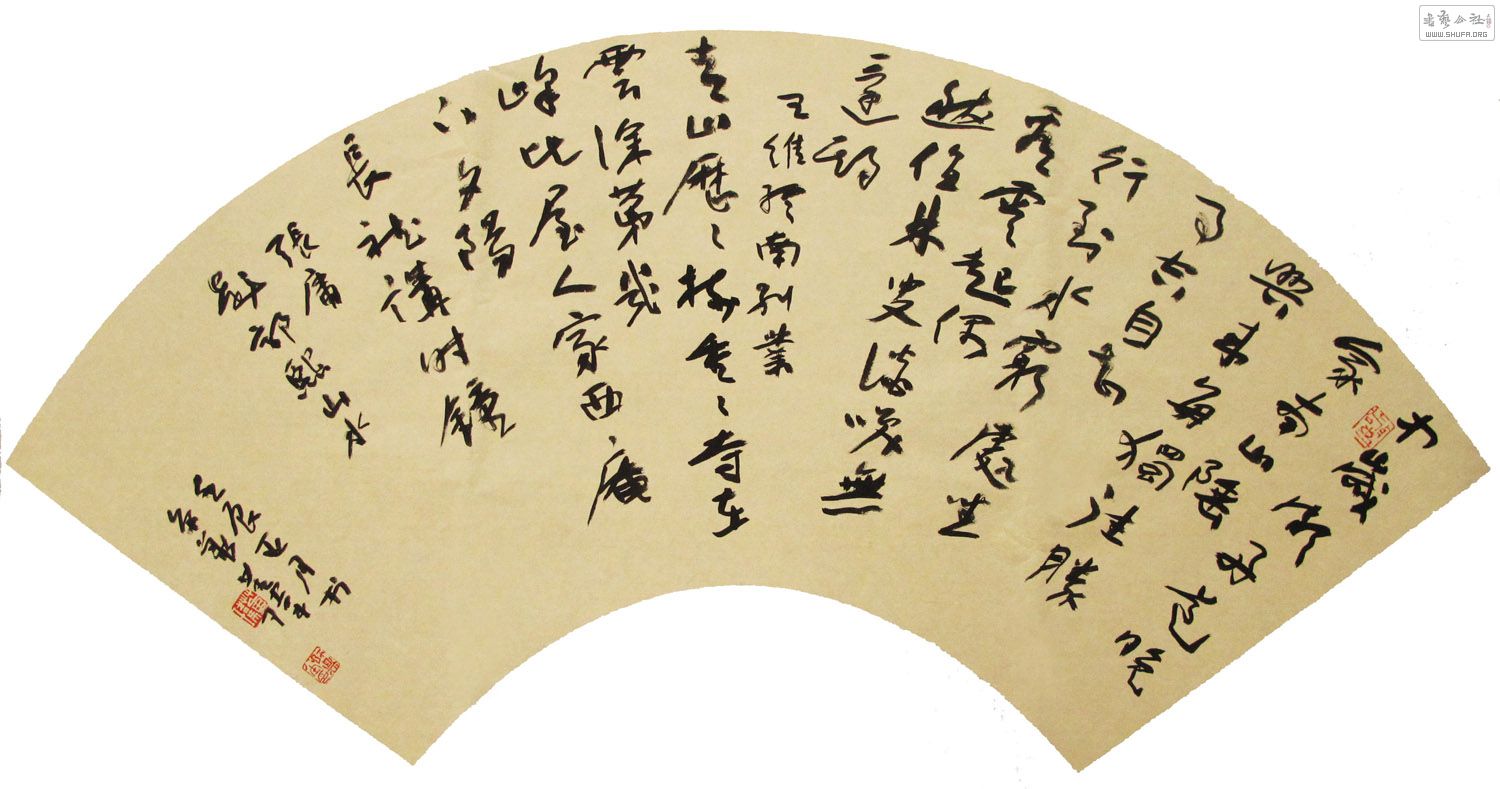 中歲頗好道晚
家南山陲
興來每獨往勝
事空自知
行到水窮處坐
看雲起偶
然值林叟談笑無
還期
王維終南别業
青山歷〻樹重〻寺在
雲深第幾
峰比屋人家西庵
下夕陽
長祇講時鐘
張庸
題郭熙山水
壬辰正月书
書藝公社
WWW.SHUFA.ORG